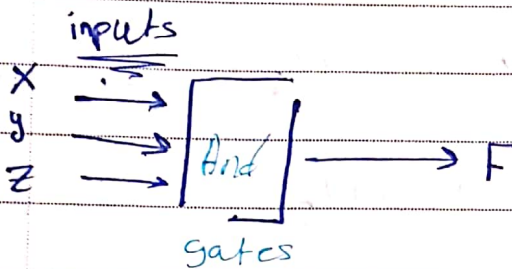 inputs
X
y
And
F
Z
gates